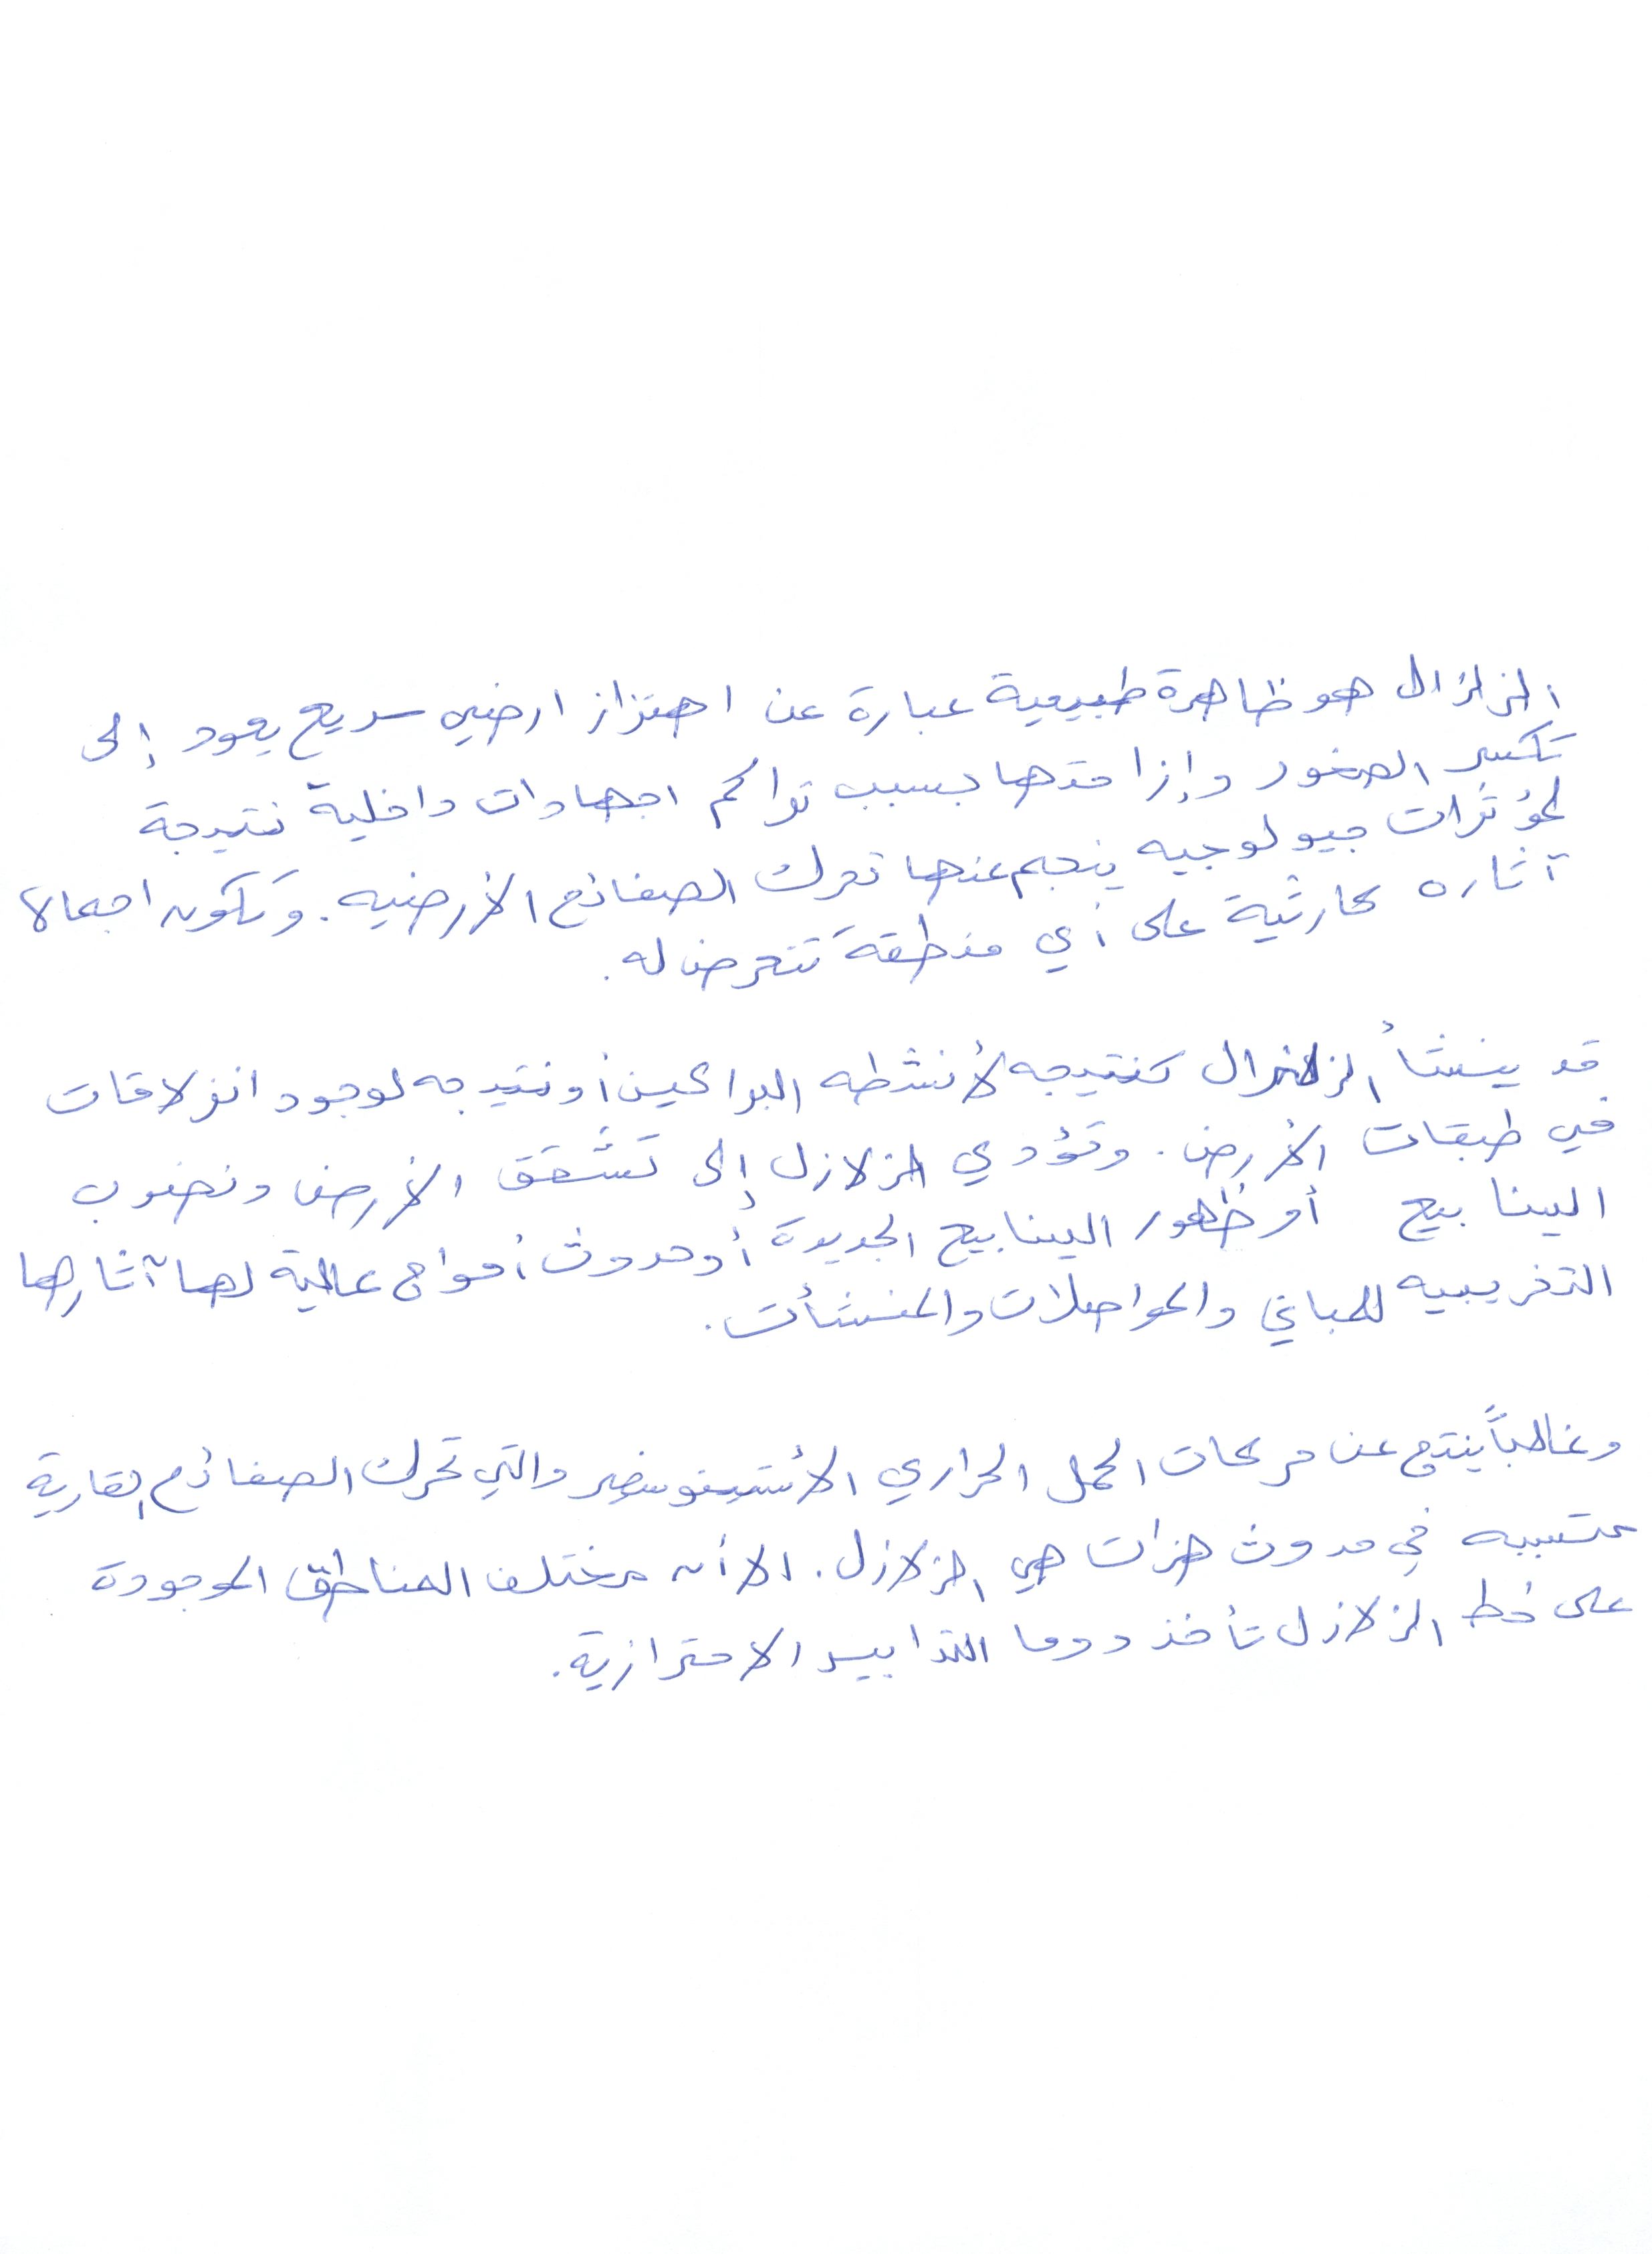 الزلزال هو ظاهرة طبيعية عبارة عن اهتزاز ارضي سريع يعود إلى
تكسر الصخور وإزاحتها بسبب تراكم اجهادات داخلية نتيجة
لمؤثرات جيولوجيه ينجم عنها تحرك الصفائح الأرضيه. وتكون اجمالا
آثاره كارثية على أي منطقة تتعرض له.
قد ينشأ الزلزال كنتيجه لأنشطه البراكين أو نتيجه لوجود انزلاقات
في طبقات الأرض. وتؤدي الزلازل إلى تشقق الأرض ونضوب
الينابيع أو ظهور الينابيع الجديدة أو حدوث أمواج عالية لها آثارها
التخريبيه للمباني والمواصلات والمنشأت.
وغالباً ينتج عن حركات الحمل الحراري الأستينوسفير والتي تحرك الصفائح القارية
متسببه في حدوث هزات هي الزلازل. الا أن مختلف المناطق الموجودة
على خط الزلازل تأخذ دوما التدابير الاحترازية.